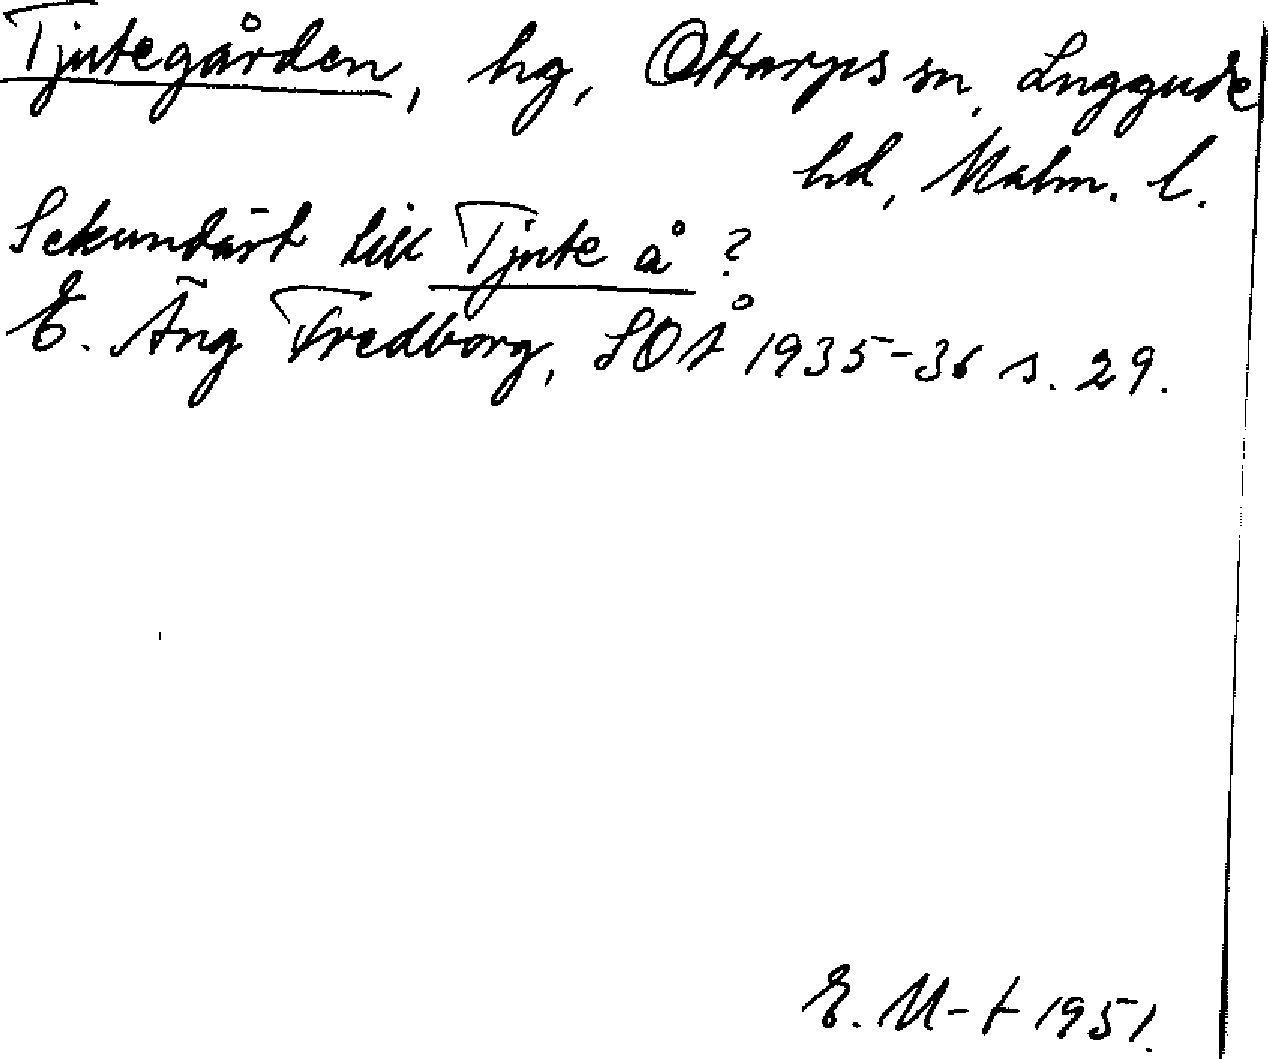 Tjutegården, hg, Ottarps sn, Luggude
hd, Malm. l.
Sekundärt till Tjute å ?
E. Äng Fredborg, SOÅ 1935-36 s. 29.
E. M-t 1951.